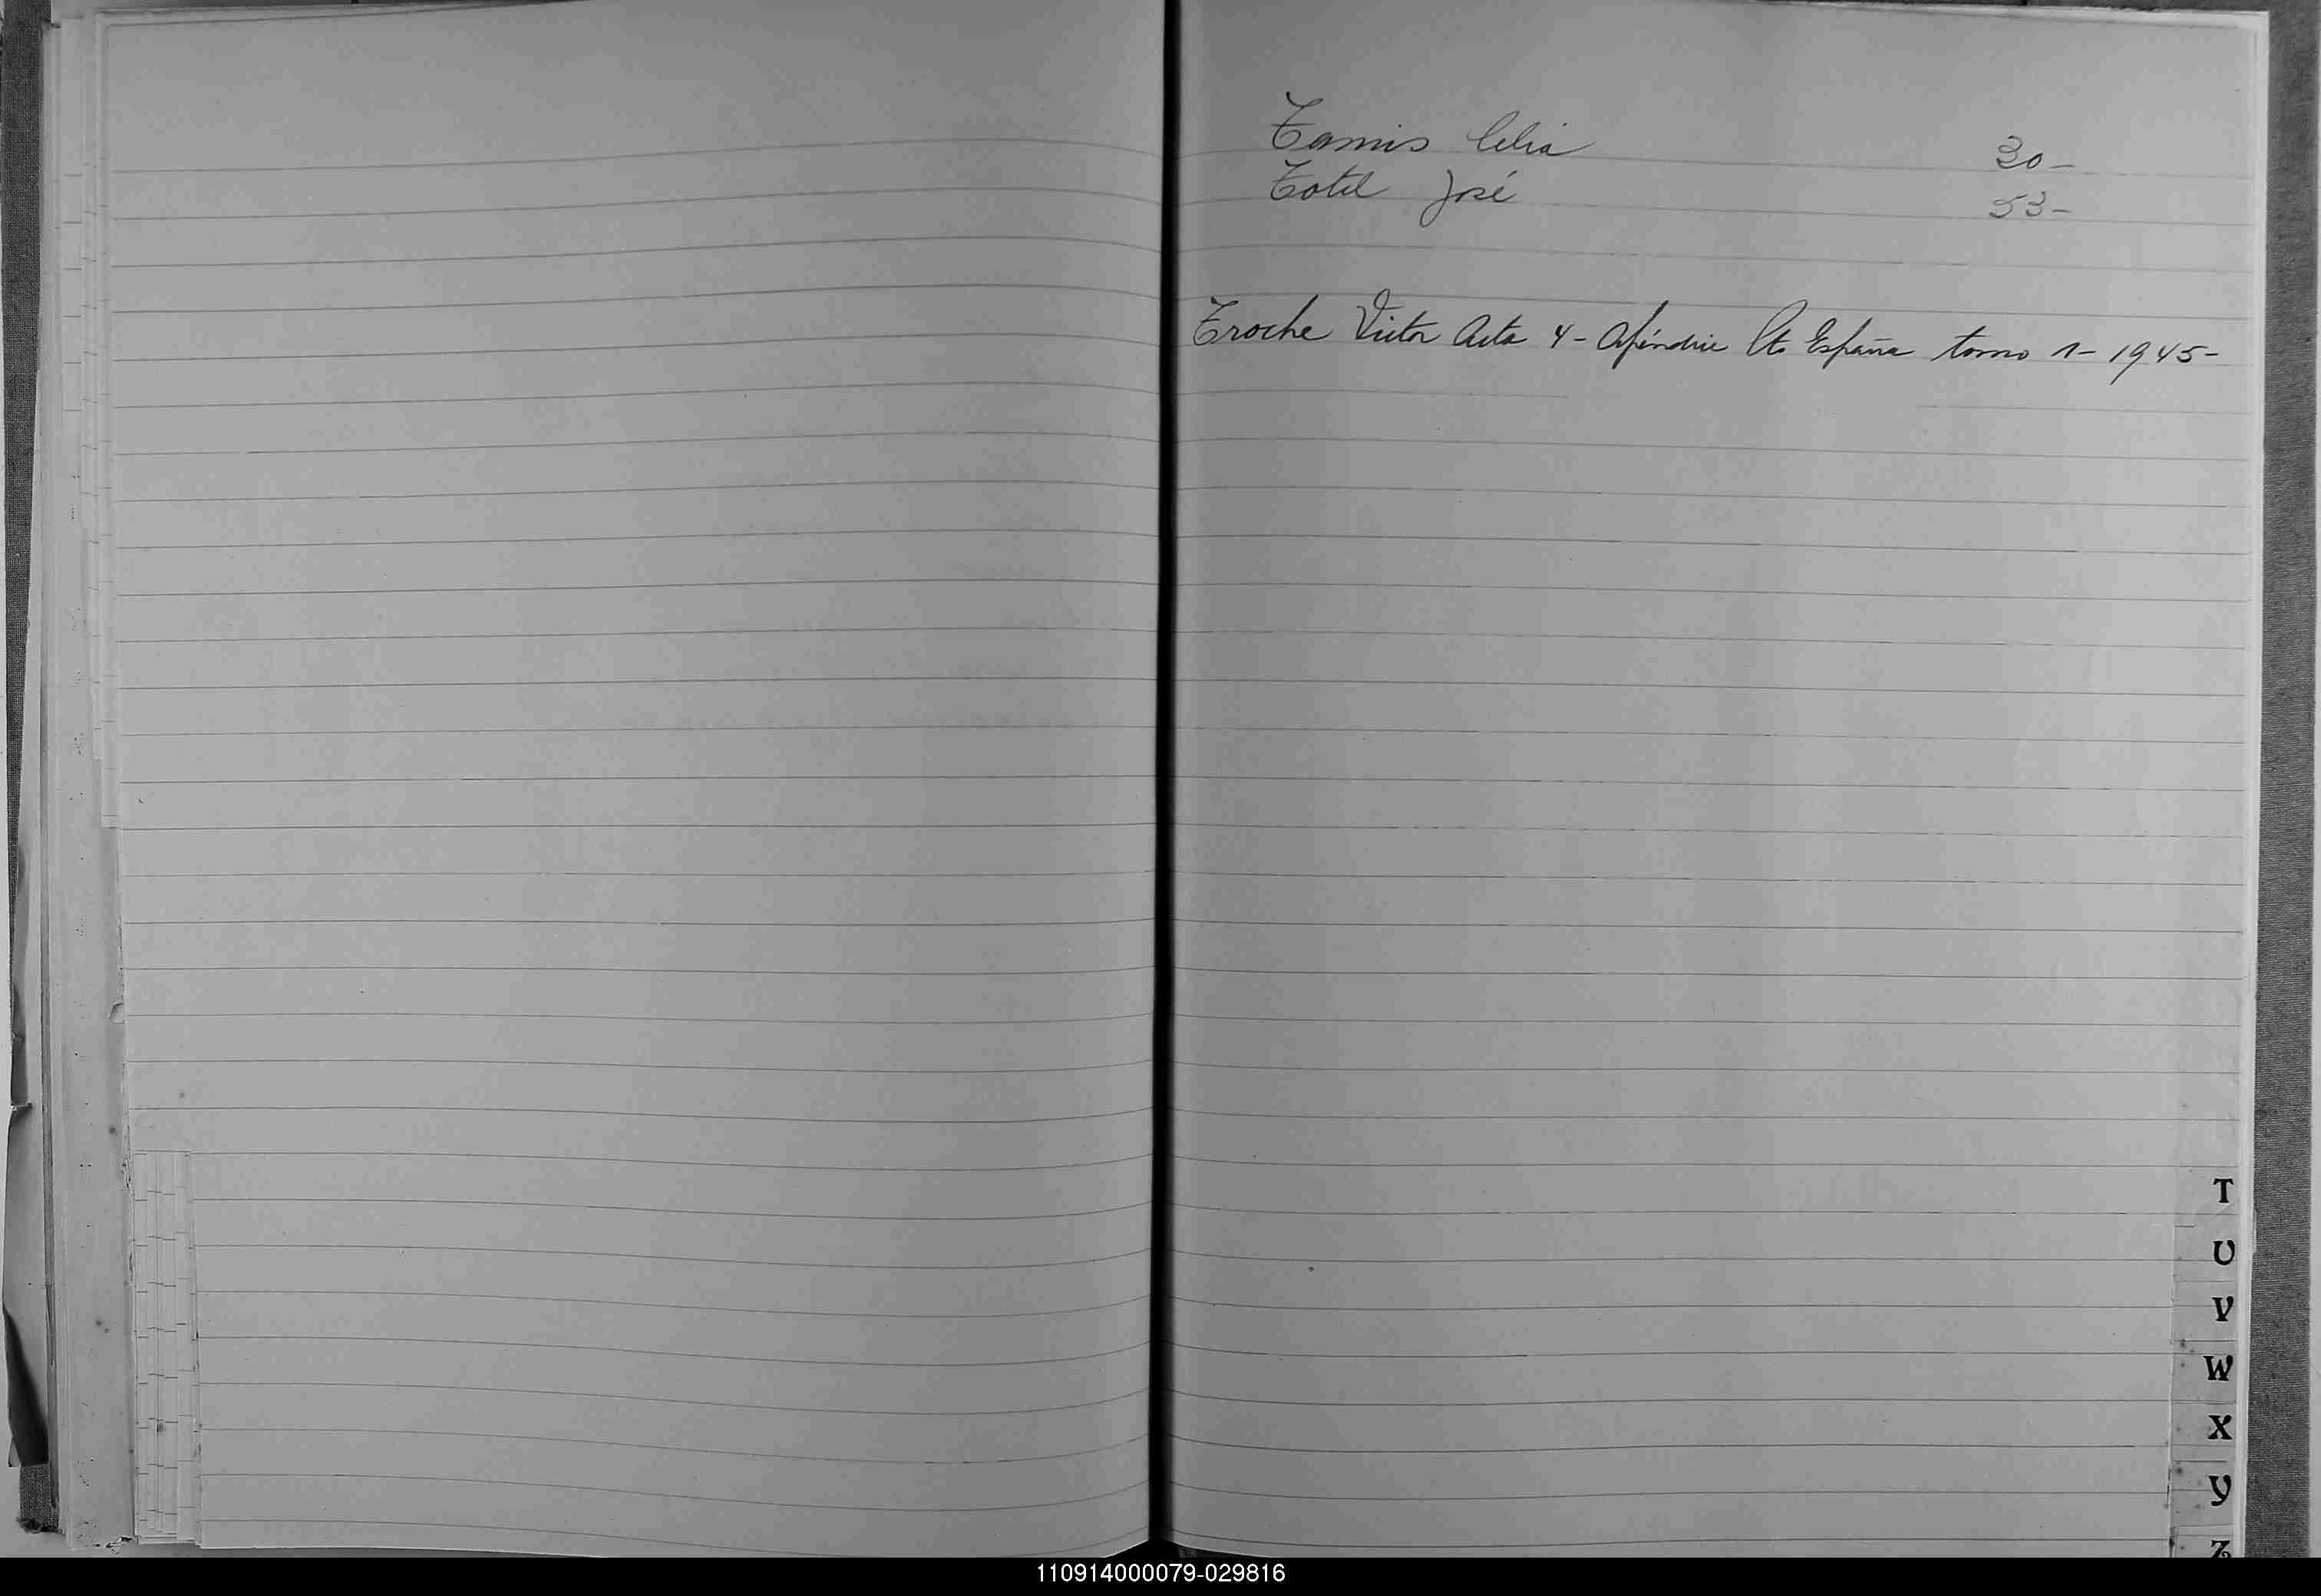 Tamis Celia 30-
Totil José 53-
Troche Victor Acta 4 - Apéndice Cto España tomo 1 - 1945 -
T
U
V
W
X
Y
Z
110914000079-029816